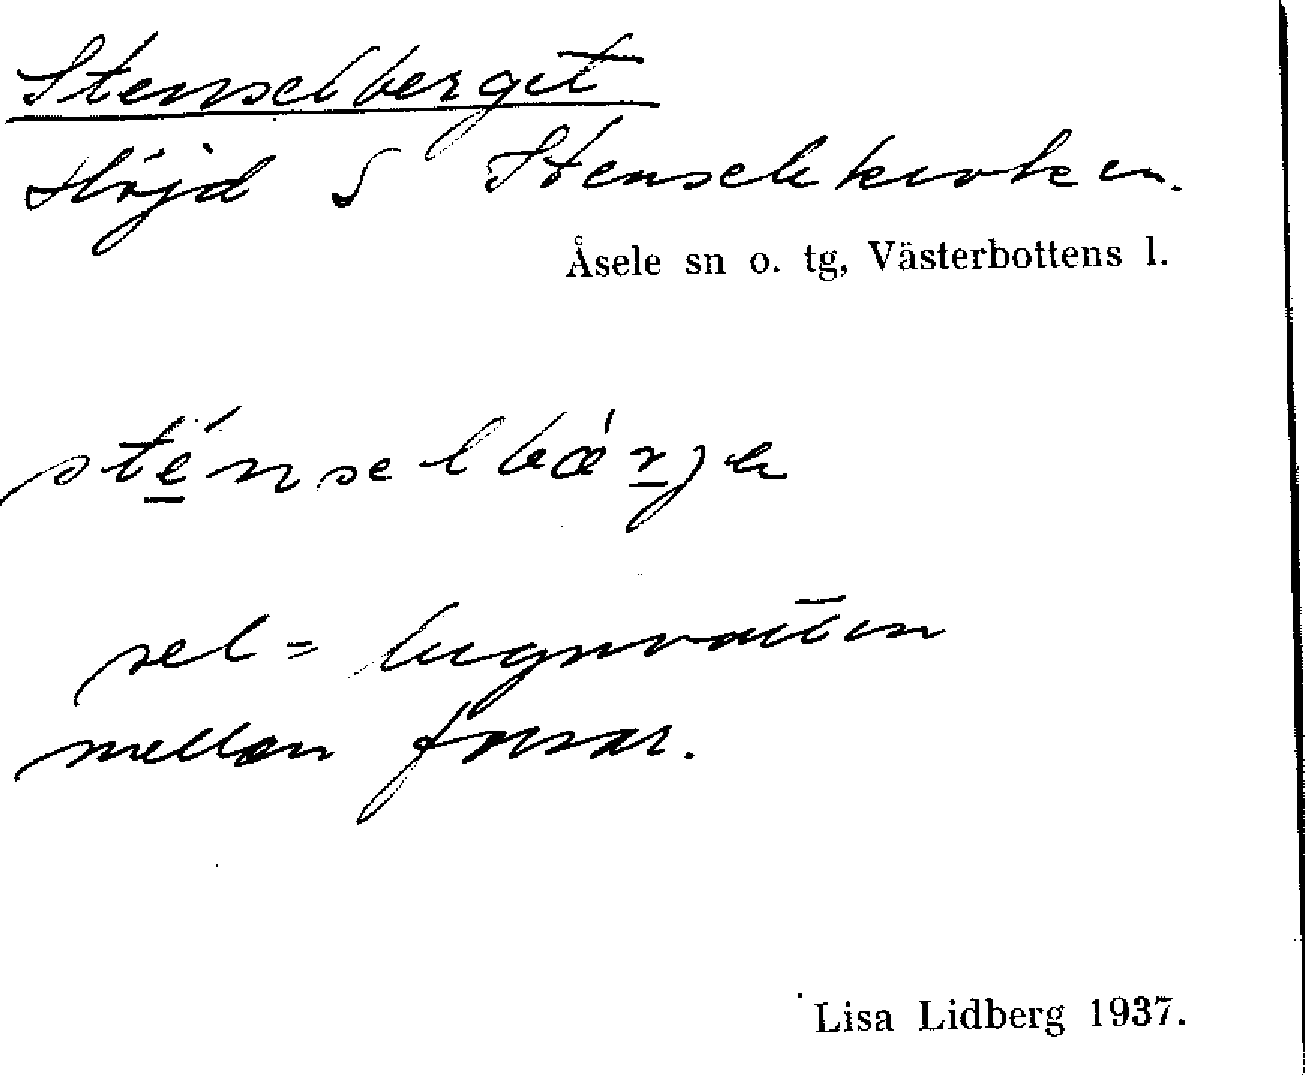 Stenselberget
Höjd S Stenselekroken.
Åsele sn o. tg, Västerbottens l.
sténselbǽrje
sel = lugnvatten
mellan forsar.
Lisa Lidberg 1937.